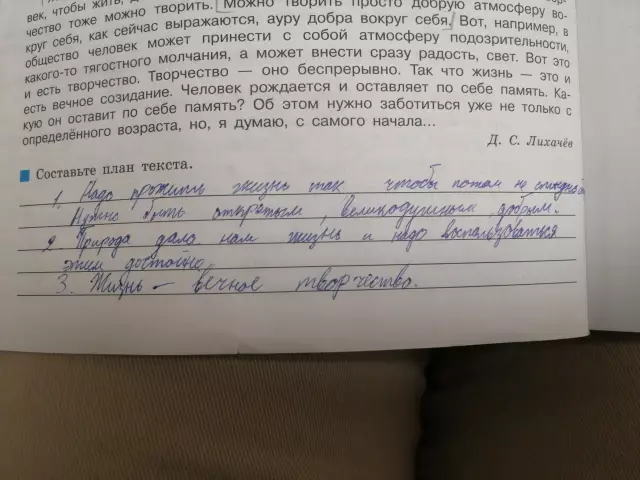 век, чтобы жить, д
чество тоже можно творить. Можно творить просто добрую атмосферу во-
круг себя, как сейчас выражаются, ауру добра вокруг себя. Вот, например, в
общество человек может принести с собой атмосферу подозрительности,
какого-то тягостного молчания, а может внести сразу радость, свет. Вот это
и есть творчество. Творчество — оно беспрерывно. Так что жизнь — это и
есть вечное созидание. Человек рождается и оставляет по себе память. Ка-
кую он оставит по себе память? Об этом нужно заботиться уже не только с
определённого возраста, но, я думаю, с самого начала...
Д. С. Лихачёв
Составьте план текста.
1. Надо прожить жизнь так чтобы потом не
Нужно быть открытым, великодушным, добрым.
2. Природа дала нам жизнь и надо воспользоваться
этим достойно.
3. Жизнь – вечное творчество.